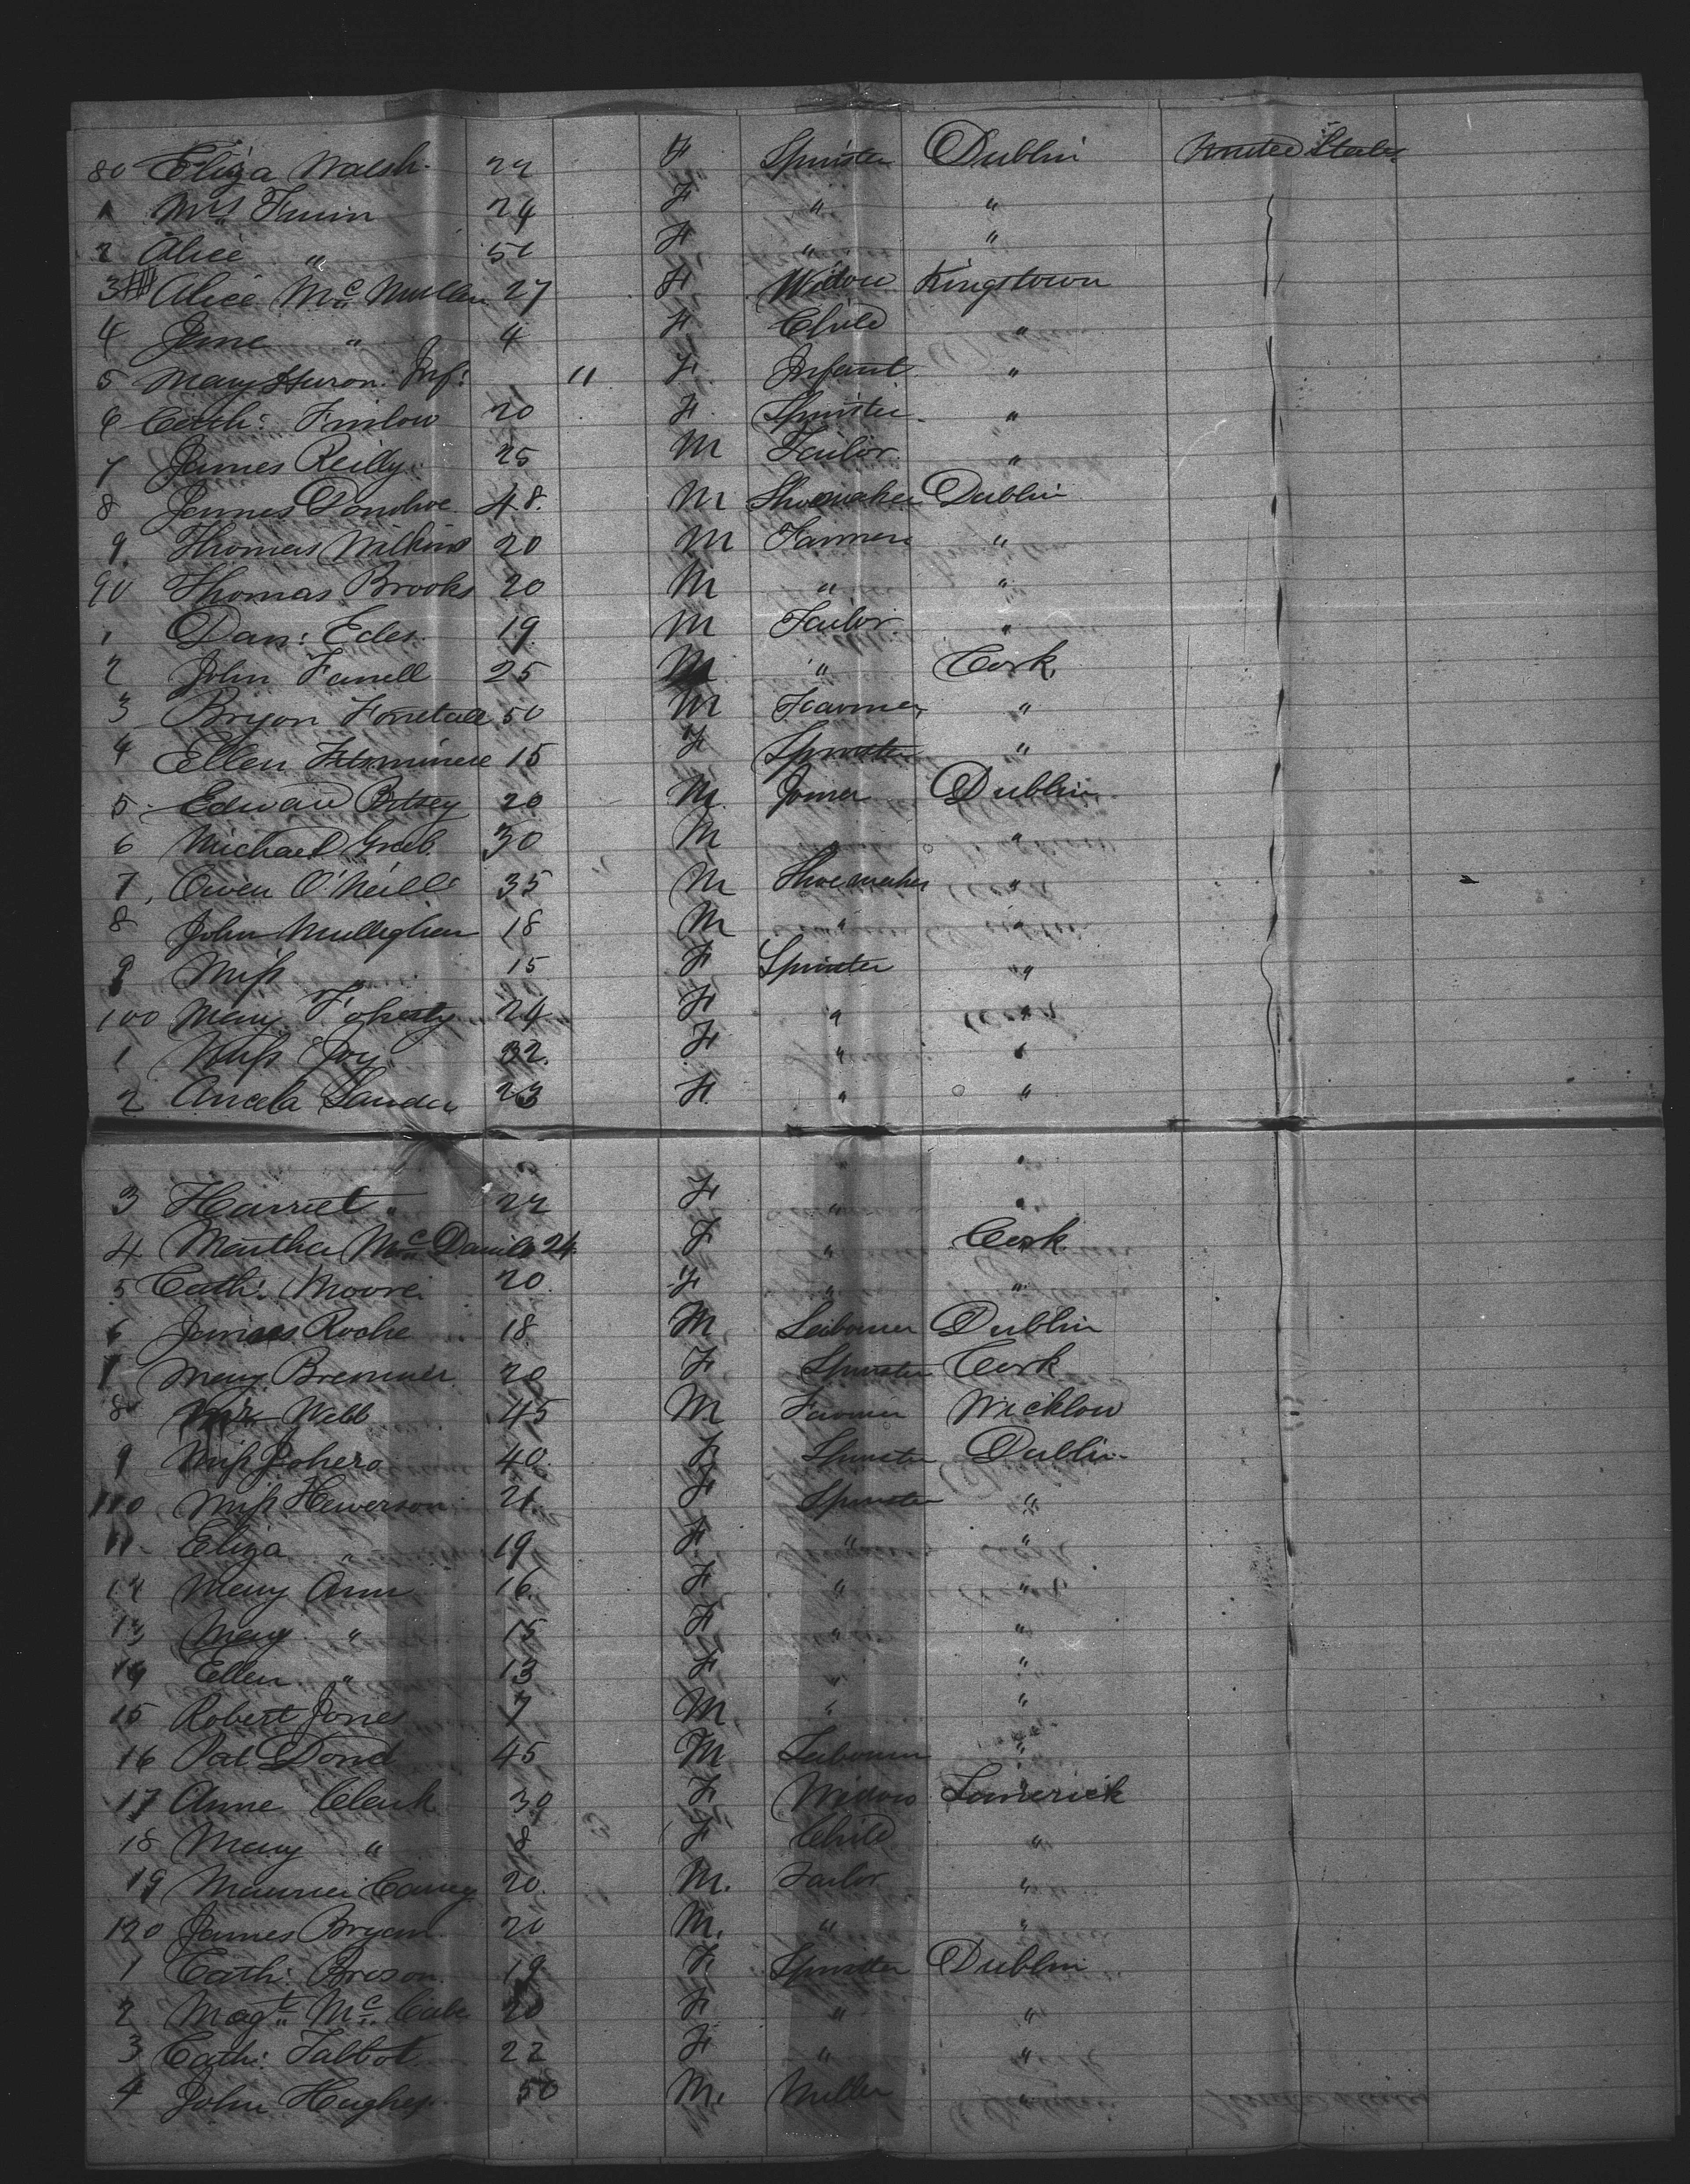 80 Eliza Walsh 22 F Spinster Dublin United States
1 Mrs 24 F " "
2 Alice " 50 F " "
3 Alice Mc Mullen 27 F Widow Kingstown
4 Jane " 4 F Child "
5 Mary Inf: 11 F Infant "
6 Cath: 20 F Spinster "
7 James Reilly 25 M Tailor "
8 James Donohoe 48 M Shoemaker Dublin
9 Thomas Wilkins 20 M Farmer "
90 Thomas Brooks 20 M " "
1 Dan: Ecles 19 M Tailor "
2 John Farrell 25 M " Cork
3 Bryon 50 M Farmer "
4 Ellen 15 F Spinster "
5 Edward 20 M Joiner Dublin
6 Michael 30 M "
7 Owen O'Neill 35 M Shoemaker "
8 John Mullighen 18 M " "
9 Miss 15 F Spinster "
100 Mary 24 F " "
1 Miss Joy 32 F " "
2 23 F " "
"
3 Harriet " 22 F " "
4 Martha Mc 24 F " Cork
5 Cath: Moore 20 F " "
6 James Roche 18 M Labourer Dublin
7 Mary Bremner 20 F Spinster Cork
8 Webb 45 M Farmer Wicklow
9 Miss 40 F Spinster Dublin
110 Miss Hewerson 21 F Spinster "
11 Eliza " 19 F " "
12 Mary Ann 16 F " "
13 Mary " 15 F " "
14 Ellen " 13 F " "
15 Robert Jones 7 M " "
16 Pat 45 M Labourer "
17 Anne Clark 30 F Widow Limerick
18 Mary " 8 F Child "
19 Maurice Carney 20 M. Tailor "
120 James Bryan 20 M. " "
1 Cath: 19 F Spinster Dublin
2 Magt Mc Cabe 20 F " "
3 Cath: Talbot 22 F " "
4 John Hughes 50 M. Miller "